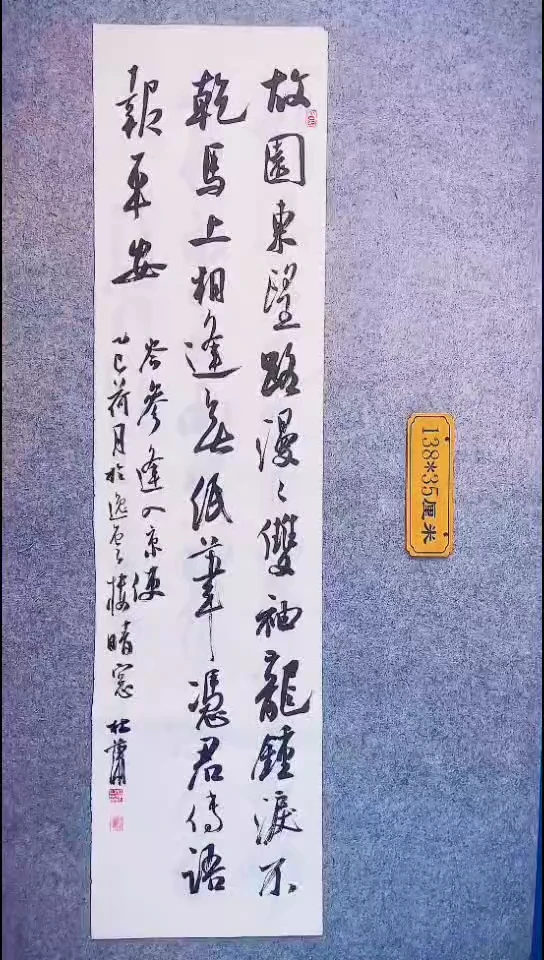 故園東望路漫〻雙袖龍鍾淚不
乾馬上相逢無紙筆憑君傳語
報平安
岑參逢入京使
乙巳荷月於逸雲樓晴窓
138*35厘米